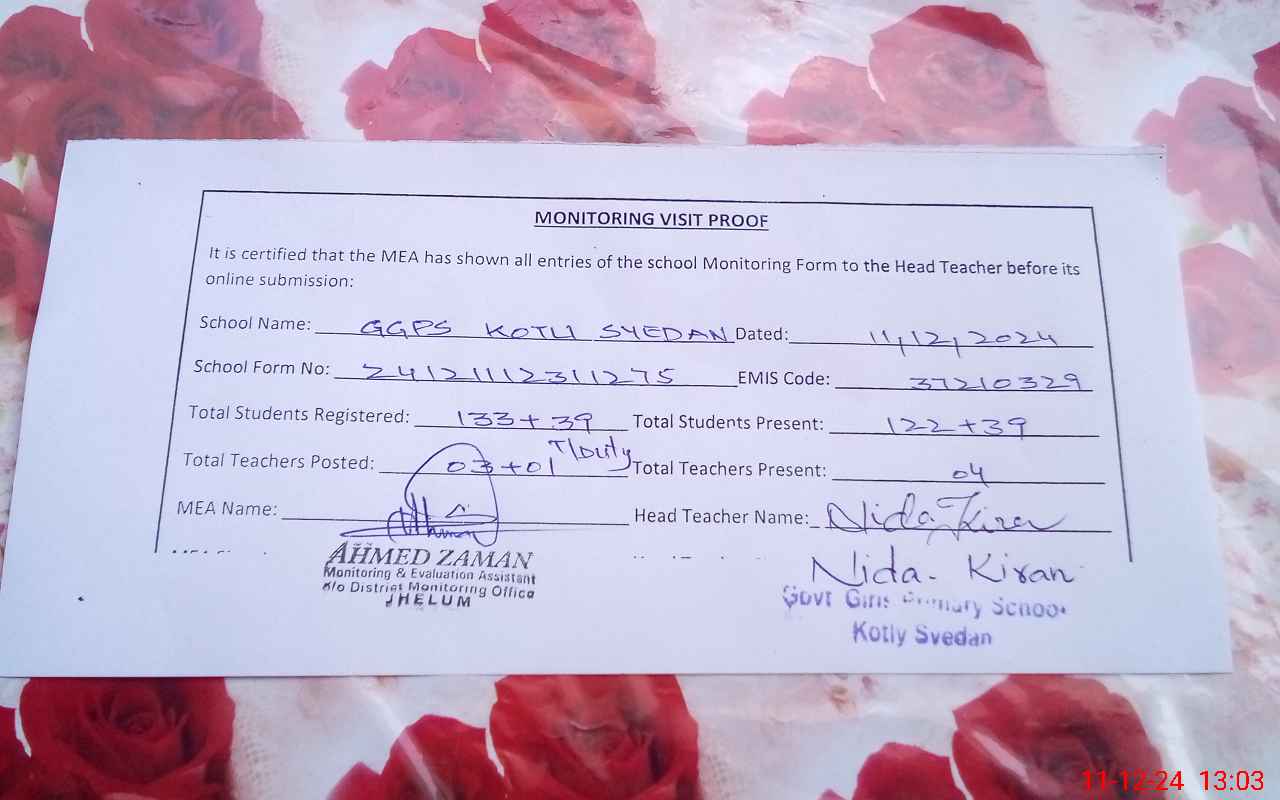 MONITORING VISIT PROOF
It is certified that the MEA has shown all entries of the school Monitoring Form to the Head Teacher before its
online submission:
School Name: GGPS KOTLI SYEDAN Dated: 11,12,2024
School Form No: 24121112311275 EMIS Code: 37210329
Total Students Registered: 133+39 Total Students Present: 122+39
Total Teachers Posted: 03+01 T/Duty Total Teachers Present: 04
MEA Name: Head Teacher Name: Nida Kiran
AHMED ZAMAN
Monitoring & Evaluation Assistant
o/o District Monitoring Office
JHELUM
Nida. Kiran
Govt Girls Primary School
Kotly Syedan
11-12-24 13:03